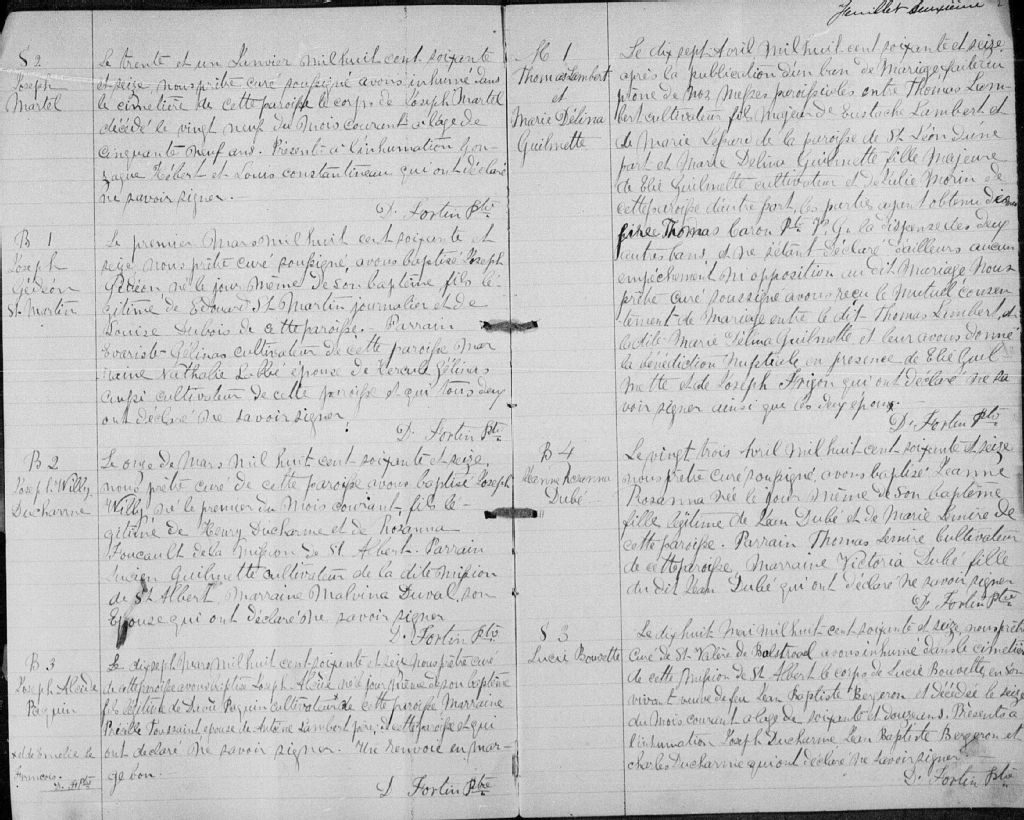 Feuillet deuxième
S 2
Joseph
Martel
Le trente et un Janvier mil huit cent soixante
et seize, nous prêtre curé soussigné avons inhumé dans
le cimetière de cette paroisse le corps de Joseph Martel
décédé le vingt neuf du mois courant à l'âge de
cinquante neuf ans. Présent à l'inhumation Gon-
zague Hébert et Louis Constantineau qui ont déclaré
ne savoir signer.
D. Fortin Ptre
B 1
Joseph
Gédéon
St Martin
Le premier Mars mil huit cent soixante et
seize, nous prêtre curé soussigné, avons baptisé Joseph
Gédéon né le jour même de son baptême fils lé-
gitime de Edouard St Martin journalier et de
Louise Dubois de cette paroisse. Parrain
Evariste Gélinas cultivateur de cette paroisse Mar
raine Nathalie Labbé épouse de Gélinas
aussi cultivateur de cette paroisse et qui tous deux
ont déclaré ne savoir signer.
D. Fortin Ptre
B 2
Joseph Willy
Ducharme
Le onze de Mars mil huit cent soixante et seize,
nous prêtre curé de cette paroisse avons baptisé Joseph
Willy né le premier du mois courant, fils lé-
gitime de Henry Ducharme et de Rosanna
Foucault de la mission de St Albert. Parrain
Lucien Guilmette cultivateur de la dite mission
de St Albert, Marraine Malvina Duval, son
Epouse qui ont déclaré ne savoir signer
D. Fortin Ptre
B 3
Joseph Alcide
Paquin
et de Emelie la
François.
D. F. Ptre
Le dix sept Mars mil huit cent soixante et seize nous prêtre curé
de cette paroisse avons baptisé Joseph Alcide né le jour même de son baptême
fils légitime de Paquin cultivateur de cette paroisse Marraine
Toussaint épouse de Antoine Lambert de cette paroisse et qui
ont déclaré ne savoir signer. Un renvoie en mar-
ge bon.
D Fortin Ptre
M 1
Thomas Lambert
et
Marie Délina
Guilmette
Le dix sept Avril mil huit cent soixante et seize,
après la publication d'un ban de mariage faite au
prône de nos messes paroissiales entre Thomas Lam-
bert cultivateur fils majeur de Eustache Lambert et
de Marie de la paroisse de St Léon d'une
part et Marie Delina Guilmette fille majeure
de Elie Guilmette cultivateur et de Julie Morin de
cette paroisse d'autre part, les parties ayant obtenu de
Thomas Caron Ptre V. G. la dispense des deux
autres bans, et ne s'étant déclaré d'ailleurs aucun
empêchement ni opposition au dit mariage nous
prêtre curé soussigné avons reçu le mutuel consen-
tement de mariage entre le dit Thomas Lambert, et
la dite Marie Délina Guilmette et leur avons donné
la bénédiction nuptiale en présence de Elie Guil
mette et de Joseph Frigon qui ont déclaré ne sa
voir signer ainsi que les deux époux.
D. Fortin Ptre
B 4
Jeanne Rosanna
Dubé
Le vingt trois Avril mil huit cent soixante et seize
nous prêtre curé soussigné, avons baptisé Jeanne
Rosanna née le jour même de son baptême
fille légitime de Jean Dubé et de Marie Lemire de
cette paroisse. Parrain Thomas Lemire cultivateur
de cette paroisse, Marraine Victoria Dubé fille
du dit Jean Dubé qui ont déclaré ne savoir signer
D. Fortin Ptre
S 3
Lucie Bouvette
Le dix huit Mai mil huit cent soixante et seize, nous prêtre
Curé de St Valère de Bulstrode avons inhumé dans le cimetière
de cette mission de St Albert le corps de Lucie Bouvette, en son
vivant veuve de feu Jean Baptiste Bergeron et décédée le seize
du mois courant à l'âge de soixante et douze ans. Présents à
l'inhumation Joseph Ducharme Jean Baptiste Bergeron et
Charles Ducharme qui ont déclaré ne savoir signer
D. Fortin Ptre